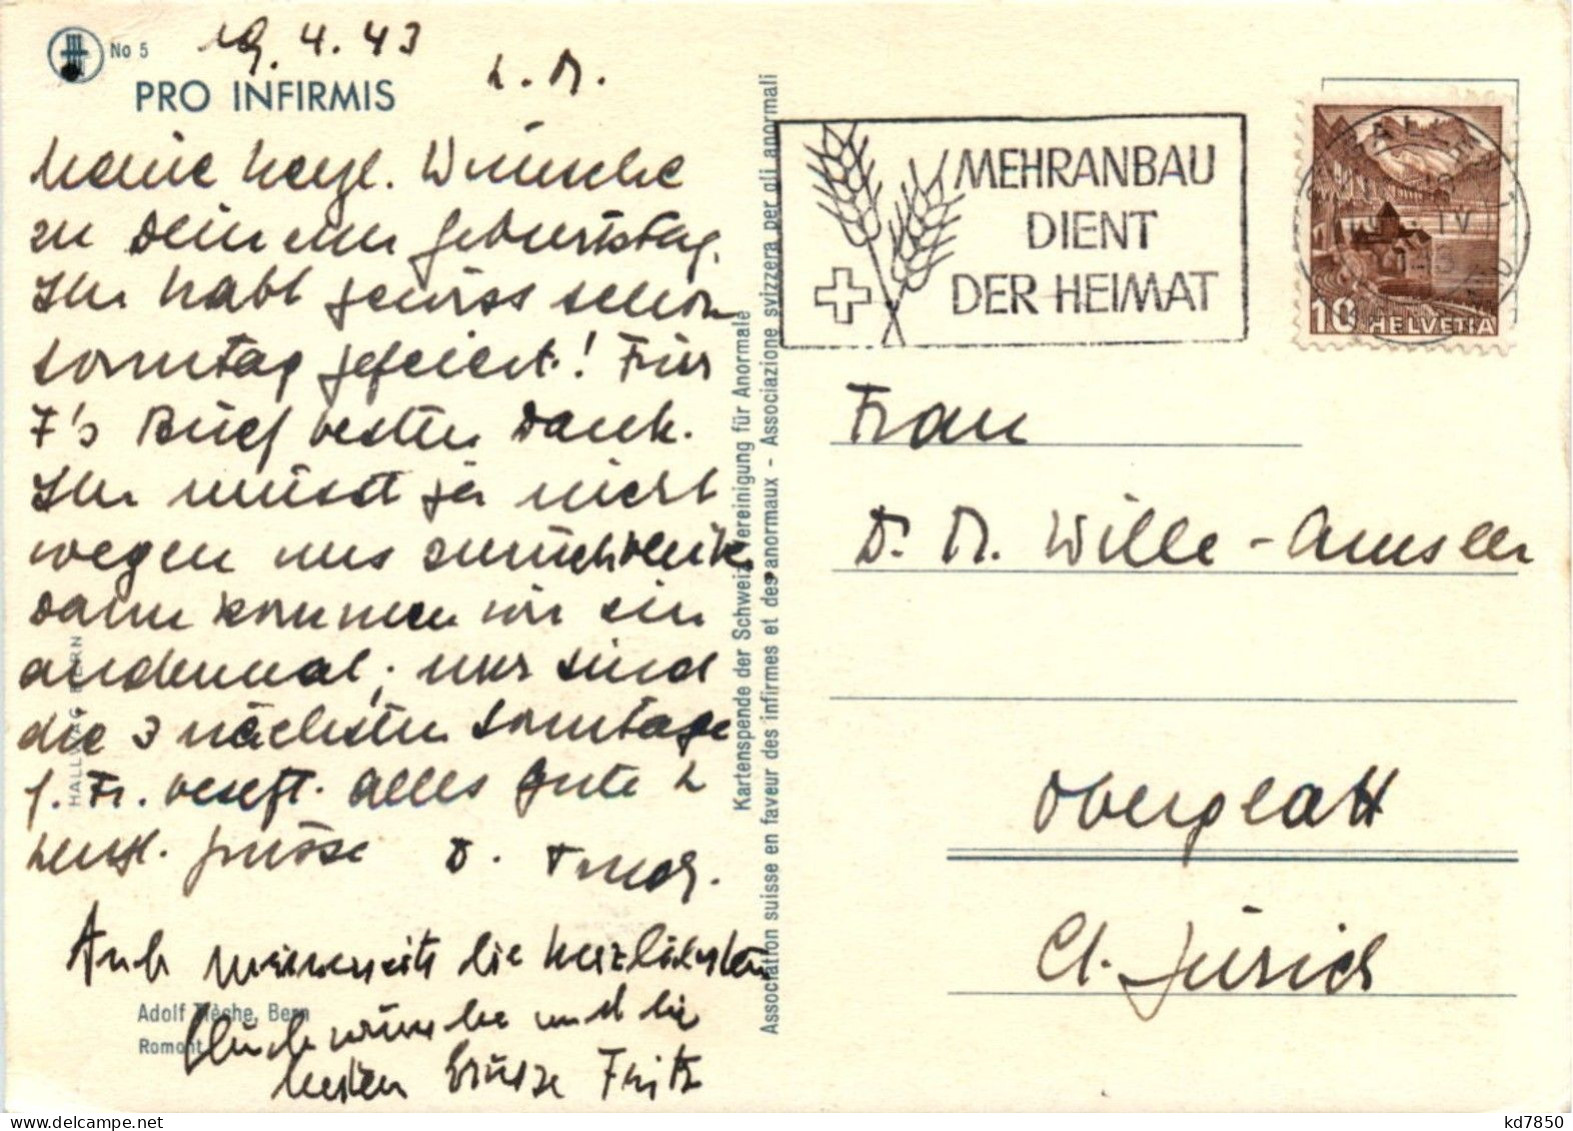 No 5
19.4.43
PRO INFIRMIS
L. M.
Meine herzl. Wünsche
zu Deinem Geburtstag.
Ihr habt gewiss schon
Sonntag gefeiert! Für
F's Brief besten Dank.
Ihr müsst ja nicht
wegen uns
Dann kommen wir ein
andermal, nur sind
die 3 nächsten Sonntage
f. Fr. besetzt. Alles Gute &
herzl. Grüsse D.
Auch meinerseits die herzlichsten
Glückwünsche und die
besten Grüsse Fritz
HALLWAG BERN
Adolf Tièche, Bern
Romont
Kartenspende der Schweiz. Vereinigung für Anormale
Association suisse en faveur des infirmes et des anormaux - Associazione svizzera per gli anormali
MEHRANBAU
DIENT
DER HEIMAT
10 HELVETIA
IV
Frau
D. M. Wille-Amsler
Oberglatt
Ct. Zürich
kd7850